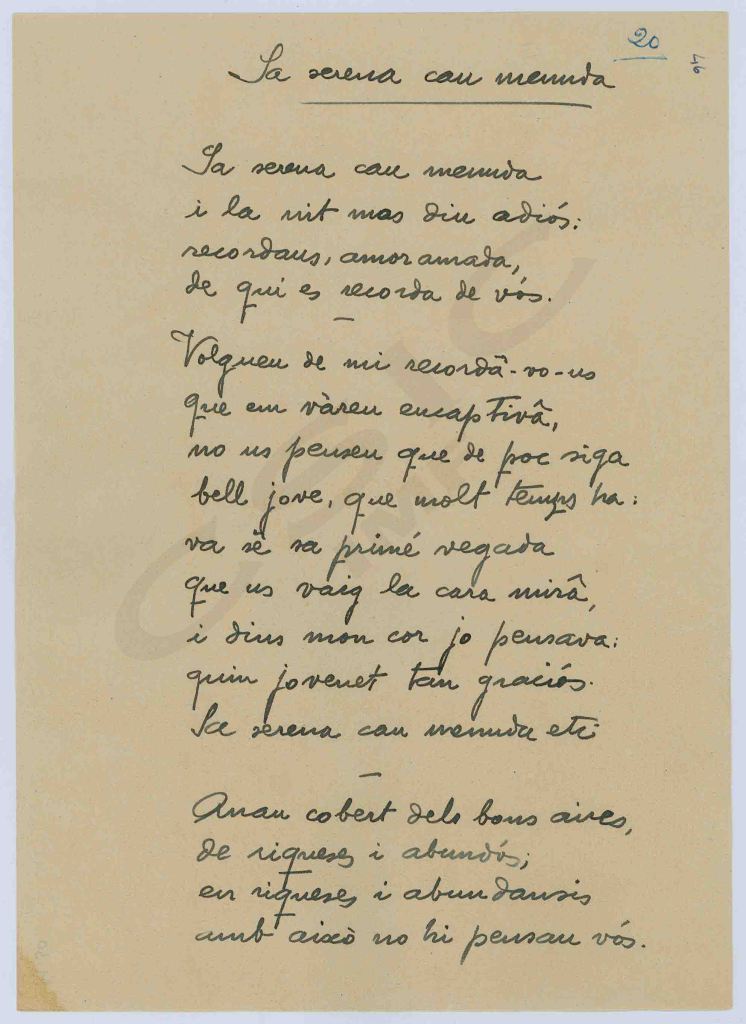 20
46
Sa serena cau menuda
Sa serena cau menuda
i la nit mos diu adiós:
recordaus, amor amada,
de qui es recorda de vós.
Volgueu de mi recordâ-vo-us
que em vàreu encaptivâ,
no us penseu que de poc siga
bell jove, que molt temps ha:
va sê sa primé vegada
que us vaig la cara mirâ,
i dins mon cor jo pensava:
quin jovenet tan graciós.
Sa serena cau menuda etc
Anau cobert dels bons aires,
de riqueses i abundós;
en riqueses i abundansis
amb això no hi pensau vós.